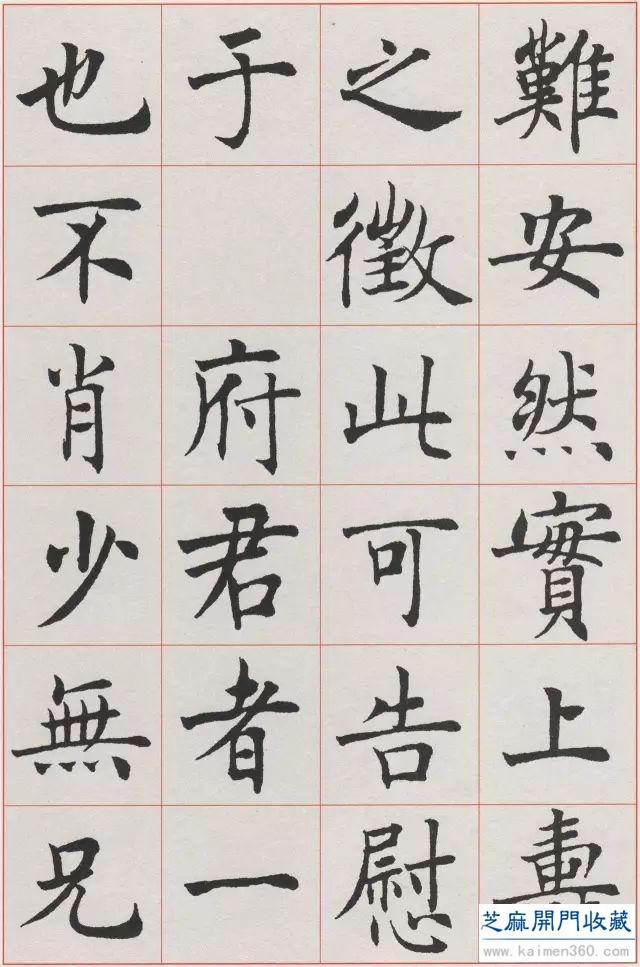 難安然實上壽
之徵此可告慰
于府君者一
也不肖少無兄
芝麻開門收藏
www.kaimen360.com